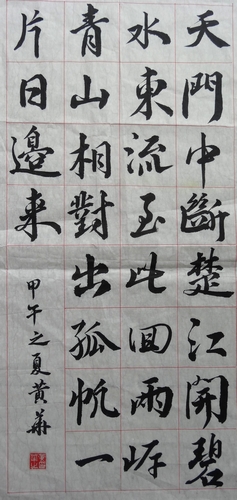 天門中斷楚江開碧
水東流至此回兩岸
青山相對出孤帆一
片日邊来
甲午之夏黄華